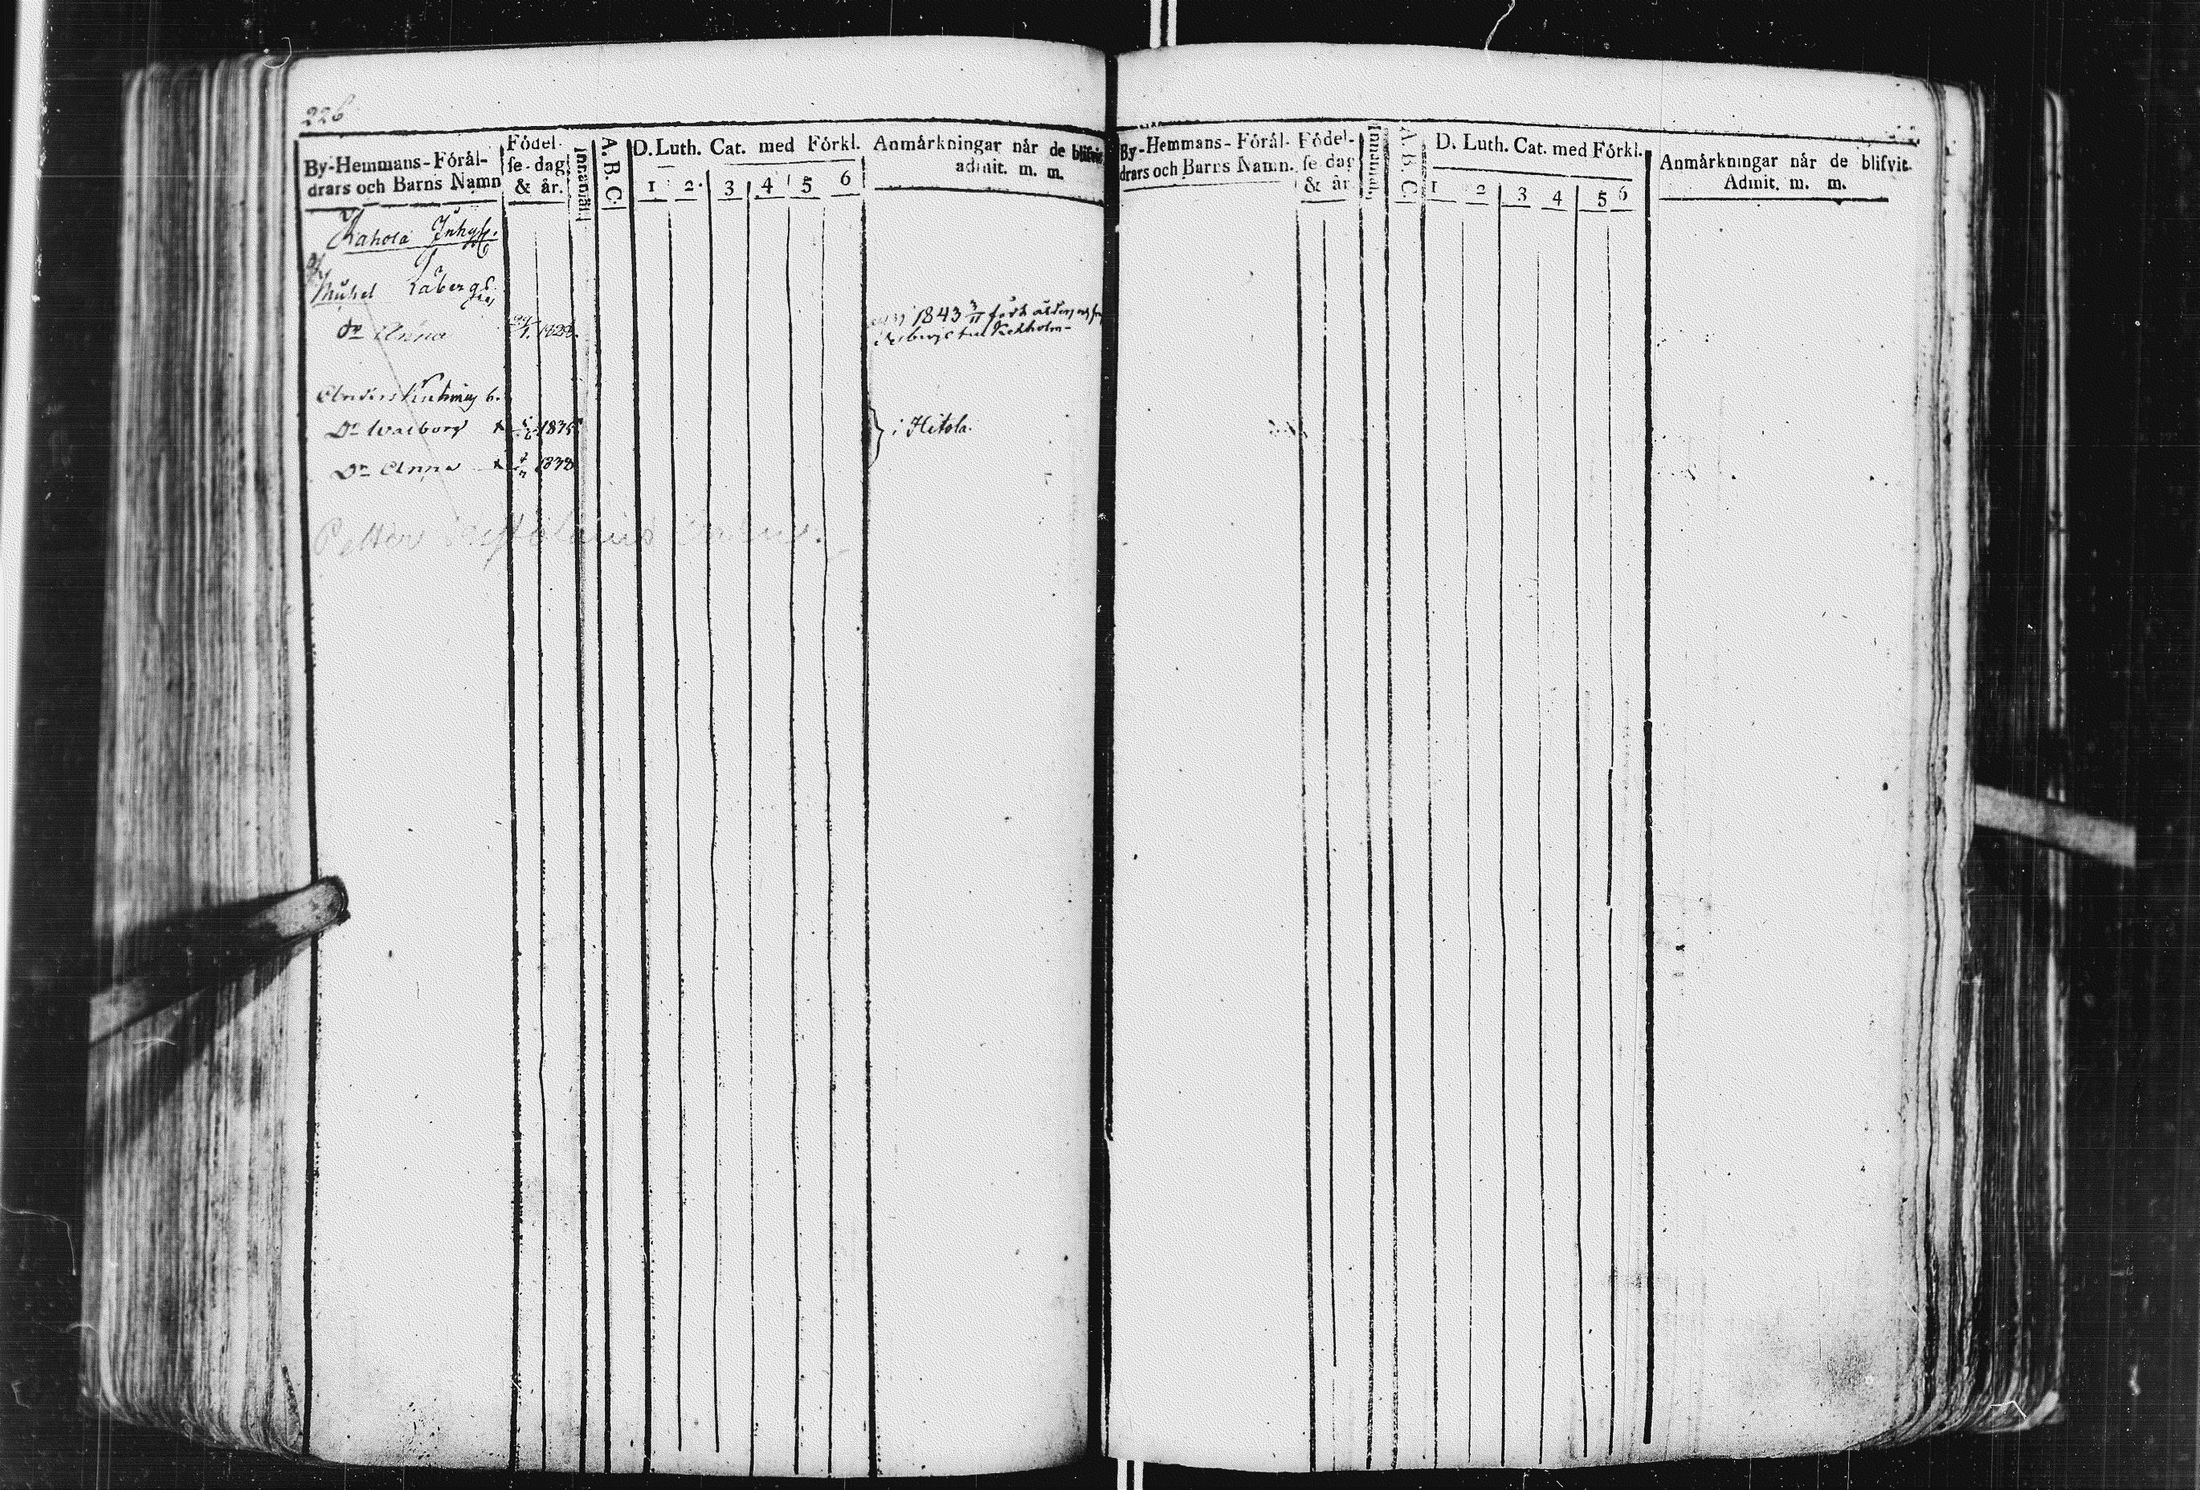 226
By-Hemmans-Föräl-
drars och Barns Namn
Födel-
se-dag
& år.
Innanläs.
A. B. C.
D. Luth. Cat. med Förkl.
1 2. 3 4 5 6
Anmärkningar når de blifvit
admit. m. m.
Kahola Inhys.
Michel
dr Anna 1828.
1843 3/11
Kexholm
Anders
Dr Walborg 1835
Dr Anna 1838
i Hitola.
Petter
By-Hemmans-Föräl-
drars och Barns Namn.
Födel-
se-dag
& år
Innanläs.
A. B. C.
D. Luth. Cat. med Förkl.
1 2 3 4 5 6
Anmärkningar når de blifvit
Admit. m. m.